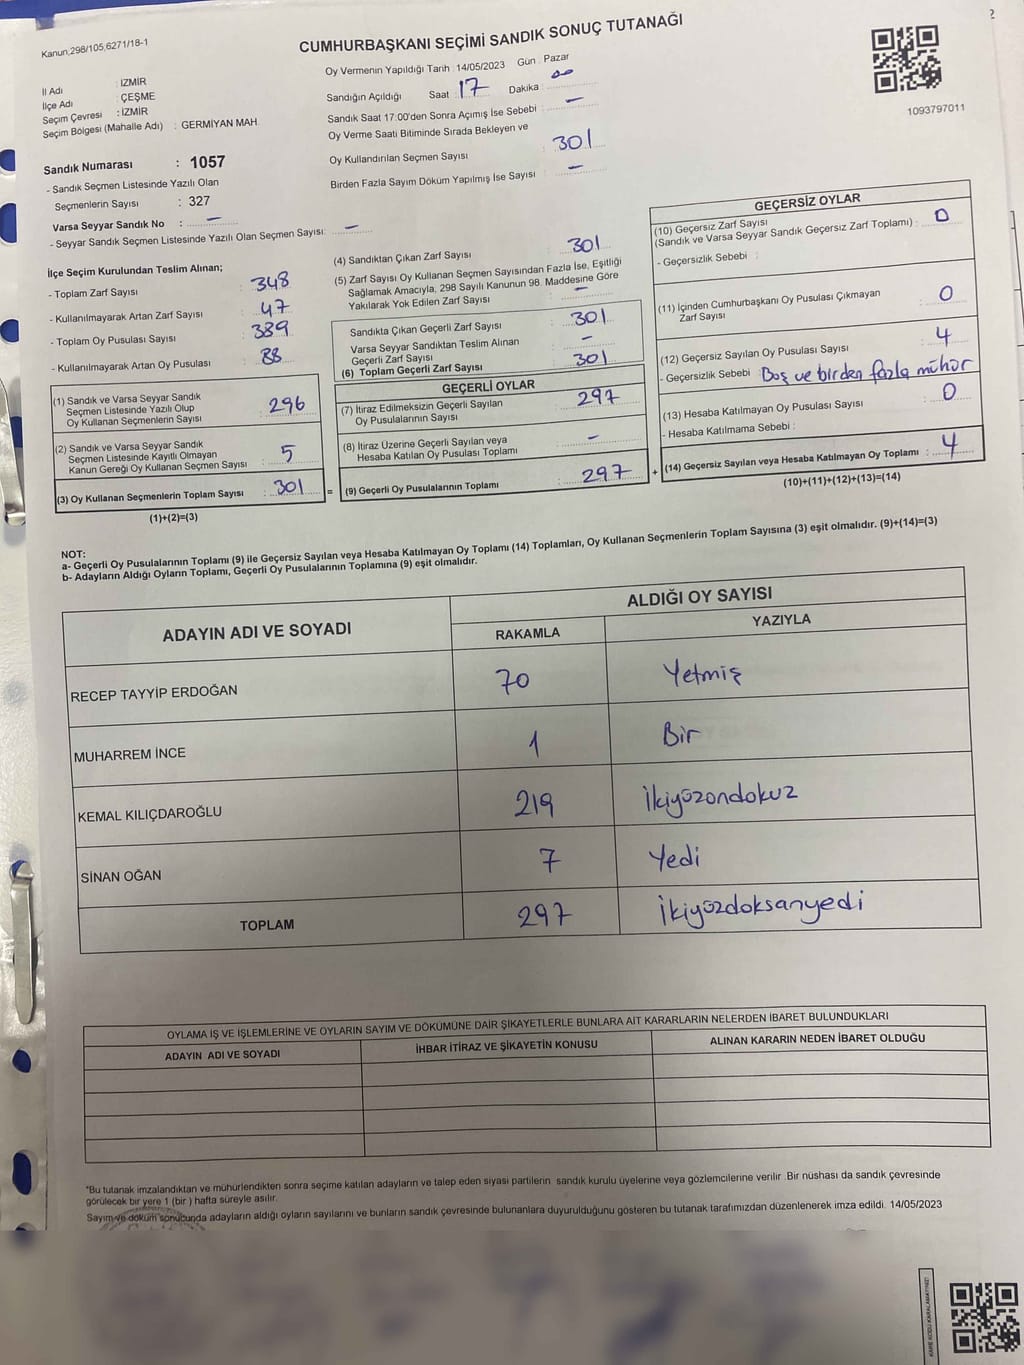 2
Kanun,298/105,6271/18-1
CUMHURBAŞKANI SEÇİMİ SANDIK SONUÇ TUTANAĞI
İl Adı : İZMİR
İlçe Adı : ÇEŞME
Seçim Çevresi : İZMİR
Seçim Bölgesi (Mahalle Adı) : GERMİYAN MAH.
Oy Vermenin Yapıldığı Tarih :14/05/2023 Gün : Pazar
Sandığın Açıldığı Saat : 17 Dakika : 00
Sandık Saat 17:00'den Sonra Açımış İse Sebebi : —
Oy Verme Saati Bitiminde Sırada Bekleyen ve
Oy Kullandırılan Seçmen Sayısı : 301
Birden Fazla Sayım Döküm Yapılmış İse Sayısı : —
1093797011
Sandık Numarası : 1057
- Sandık Seçmen Listesinde Yazılı Olan
Seçmenlerin Sayısı : 327
Varsa Seyyar Sandık No : —
- Seyyar Sandık Seçmen Listesinde Yazılı Olan Seçmen Sayısı: —
İlçe Seçim Kurulundan Teslim Alınan;
- Toplam Zarf Sayısı : 348
- Kullanılmayarak Artan Zarf Sayısı : 47
- Toplam Oy Pusulası Sayısı : 389
- Kullanılmayarak Artan Oy Pusulası : 88
(1) Sandık ve Varsa Seyyar Sandık
Seçmen Listesinde Yazılı Olup
Oy Kullanan Seçmenlerin Sayısı : 296
(2) Sandık ve Varsa Seyyar Sandık
Seçmen Listesinde Kayıtlı Olmayan
Kanun Gereği Oy Kullanan Seçmen Sayısı : 5
(3) Oy Kullanan Seçmenlerin Toplam Sayısı : 301 =
(1)+(2)=(3)
(4) Sandıktan Çıkan Zarf Sayısı : 301
(5) Zarf Sayısı Oy Kullanan Seçmen Sayısından Fazla İse, Eşitliği
Sağlamak Amacıyla, 298 Sayılı Kanunun 98. Maddesine Göre
Yakılarak Yok Edilen Zarf Sayısı : —
Sandıkta Çıkan Geçerli Zarf Sayısı : 301
Varsa Seyyar Sandıktan Teslim Alınan
Geçerli Zarf Sayısı : —
(6) Toplam Geçerli Zarf Sayısı : 301
GEÇERLİ OYLAR
(7) İtiraz Edilmeksizin Geçerli Sayılan
Oy Pusulalarının Sayısı : 297
(8) İtiraz Üzerine Geçerli Sayılan veya
Hesaba Katılan Oy Pusulası Toplamı : —
(9) Geçerli Oy Pusulalarının Toplamı : 297 +
GEÇERSİZ OYLAR
(10) Geçersiz Zarf Sayısı
(Sandık ve Varsa Seyyar Sandık Geçersiz Zarf Toplamı) : 0
- Geçersizlik Sebebi :
(11) İçinden Cumhurbaşkanı Oy Pusulası Çıkmayan
Zarf Sayısı : 0
(12) Geçersiz Sayılan Oy Pusulası Sayısı : 4
- Geçersizlik Sebebi : Boş ve birden fazla mühür
(13) Hesaba Katılmayan Oy Pusulası Sayısı : 0
- Hesaba Katılmama Sebebi :
(14) Geçersiz Sayılan veya Hesaba Katılmayan Oy Toplamı : 4
(10)+(11)+(12)+(13)=(14)
NOT:
a- Geçerli Oy Pusulalarının Toplamı (9) ile Geçersiz Sayılan veya Hesaba Katılmayan Oy Toplamı (14) Toplamları, Oy Kullanan Seçmenlerin Toplam Sayısına (3) eşit olmalıdır. (9)+(14)=(3)
b- Adayların Aldığı Oyların Toplamı, Geçerli Oy Pusulalarının Toplamına (9) eşit olmalıdır.
ADAYIN ADI VE SOYADI
ALDIĞI OY SAYISI
RAKAMLA YAZIYLA
RECEP TAYYİP ERDOĞAN 70 Yetmiş
MUHARREM İNCE 1 Bir
KEMAL KILIÇDAROĞLU 219 ikiyüzondokuz
SİNAN OĞAN 7 Yedi
TOPLAM 297 ikiyüzdoksanyedi
OYLAMA İŞ VE İŞLEMLERİNE VE OYLARIN SAYIM VE DÖKÜMÜNE DAİR ŞİKAYETLERLE BUNLARA AİT KARARLARIN NELERDEN İBARET BULUNDUKLARI
ADAYIN ADI VE SOYADI İHBAR İTİRAZ VE ŞİKAYETİN KONUSU ALINAN KARARIN NEDEN İBARET OLDUĞU
*Bu tutanak imzalandıktan ve mühürlendikten sonra seçime katılan adayların ve talep eden siyasi partilerin sandık kurulu üyelerine veya gözlemcilerine verilir. Bir nüshası da sandık çevresinde
görülecek bir yere 1 (bir ) hafta süreyle asılır.
Sayım ve döküm sonucunda adayların aldığı oyların sayılarını ve bunların sandık çevresinde bulunanlara duyurulduğunu gösteren bu tutanak tarafımızdan düzenlenerek imza edildi. 14/05/2023
KARE KODU KARALAMAYINIZ!